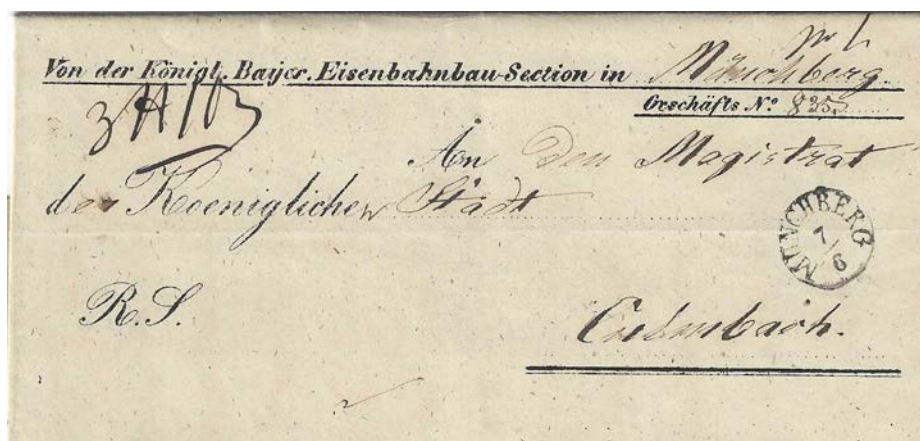 Von der Königl. Bayer. Eisenbahnbau-Section in Münchberg
Geschäfts N.º 825
An den Magistrat
der Koeniglichen Stadt
MÜNCHBERG
7/6
R. S.
Culmbach.